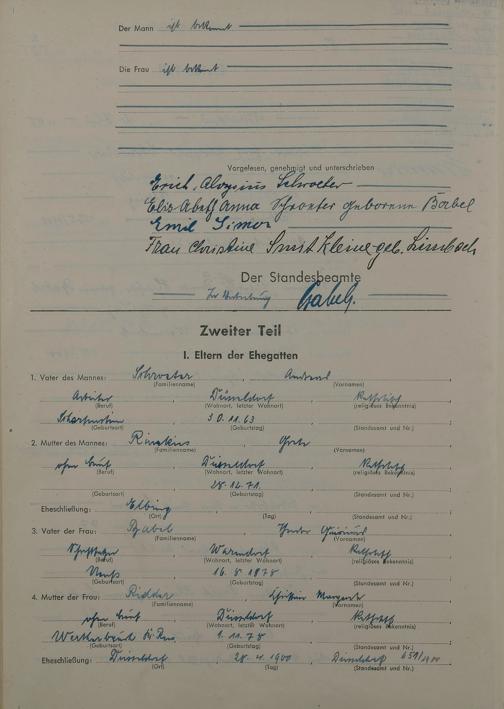 Der Mann ist bekannt
Die Frau ist bekannt
Vorgelesen, genehmigt und unterschrieben
Erich, Aloysius Schroeter
Elisabeth Anna Schroeter geborene Babel
Emil Simon
Frau Christine Smit Kleine geb. Limbach
Der Standesbeamte
In Vertretung Gabel.
Zweiter Teil
I. Eltern der Ehegatten
1. Vater des Mannes: Schroeter, Andreas
(Familienname) (Vornamen)
Arbeiter, Düsseldorf, Katholisch
(Beruf) (Wohnort, letzter Wohnort) (religiöses Bekenntnis)
30.11.63
(Geburtsort) (Geburtstag) (Standesamt und Nr.)
2. Mutter des Mannes:
(Familienname) (Vornamen)
ohne Beruf, Düsseldorf, Katholisch
(Beruf) (Wohnort, letzter Wohnort) (religiöses Bekenntnis)
28.12.71.
(Geburtsort) (Geburtstag) (Standesamt und Nr.)
Eheschließung: Elbing
(Ort) (Tag) (Standesamt und Nr.)
3. Vater der Frau: Babel
(Familienname) (Vornamen)
Katholisch
(Beruf) (Wohnort, letzter Wohnort) (religiöses Bekenntnis)
Neuß, 16.8.1878
(Geburtsort) (Geburtstag) (Standesamt und Nr.)
4. Mutter der Frau: Ridder, Christine Margarete
(Familienname) (Vornamen)
ohne Beruf, Düsseldorf, Katholisch
(Beruf) (Wohnort, letzter Wohnort) (religiöses Bekenntnis)
1.11.78
(Geburtsort) (Geburtstag) (Standesamt und Nr.)
Eheschließung: Düsseldorf, 28.4.1900, Düsseldorf 651/1900
(Ort) (Tag) (Standesamt und Nr.)